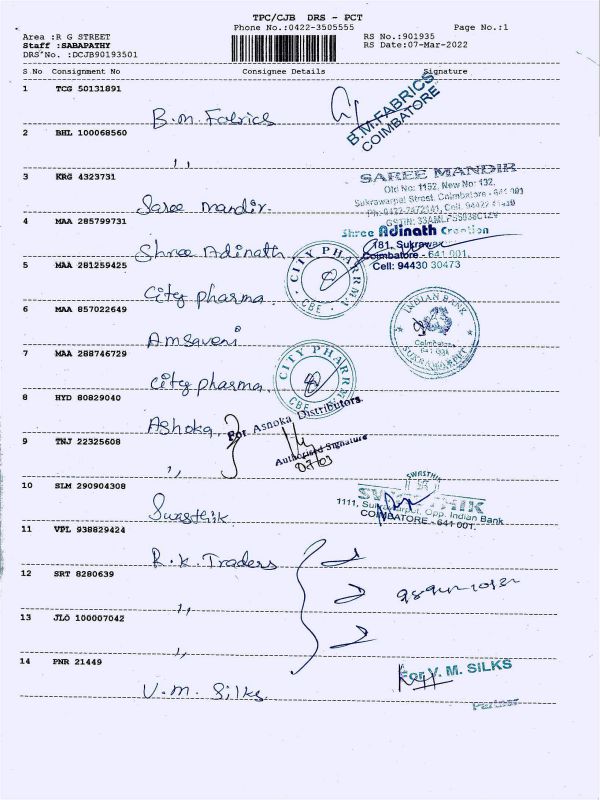 TPC/CJB DRS - PCT
Phone No.:0422-3505555 Page No.:1
Area :R G STREET RS No.:901935
Staff :SABAPATHY RS Date:07-Mar-2022
DRS No. :DCJB90193501
S No Consignment No Consignee Details Signature
1 TCG 50131891
B.M. Fabrics
B.M.FABRICS
COIMBATORE
2 BHL 100068560
,,
3 KRG 4323731
Saree Mandir.
SAREE MANDIR
Old No: 1192, New No: 132,
Sukrawarpat Street, Coimbatore - 641 001
4 MAA 285799731
Shree Adinath
Shree Adinath Creation
181, Sukrawar
Coimbatore - 641 001.
Cell: 94430 30473
5 MAA 281259425
City pharma
CITY PHARRMA
CBE
6 MAA 857022649
Amsaveni
INDIAN BANK
Coimbatore
641 001
SUKRAWARPET
7 MAA 288746729
City pharma.
CITY PHARRMA
CBE
8 HYD 80829040
Ashoka
For Asnoka Distributors.
Authorised Signature
07/03
9 TNJ 22325608
,,
10 SLM 290904308
Swasthik
SWASTHIK
SWASTHIK
1111, Sukrawarput, Opp. Indian Bank
COIMBATORE - 641 001.
11 VPL 938829424
R.K. Traders
12 SRT 8280639
,,
13 JLO 100007042
,,
14 PNR 21449
V.M. Silks
For V. M. SILKS
Partner